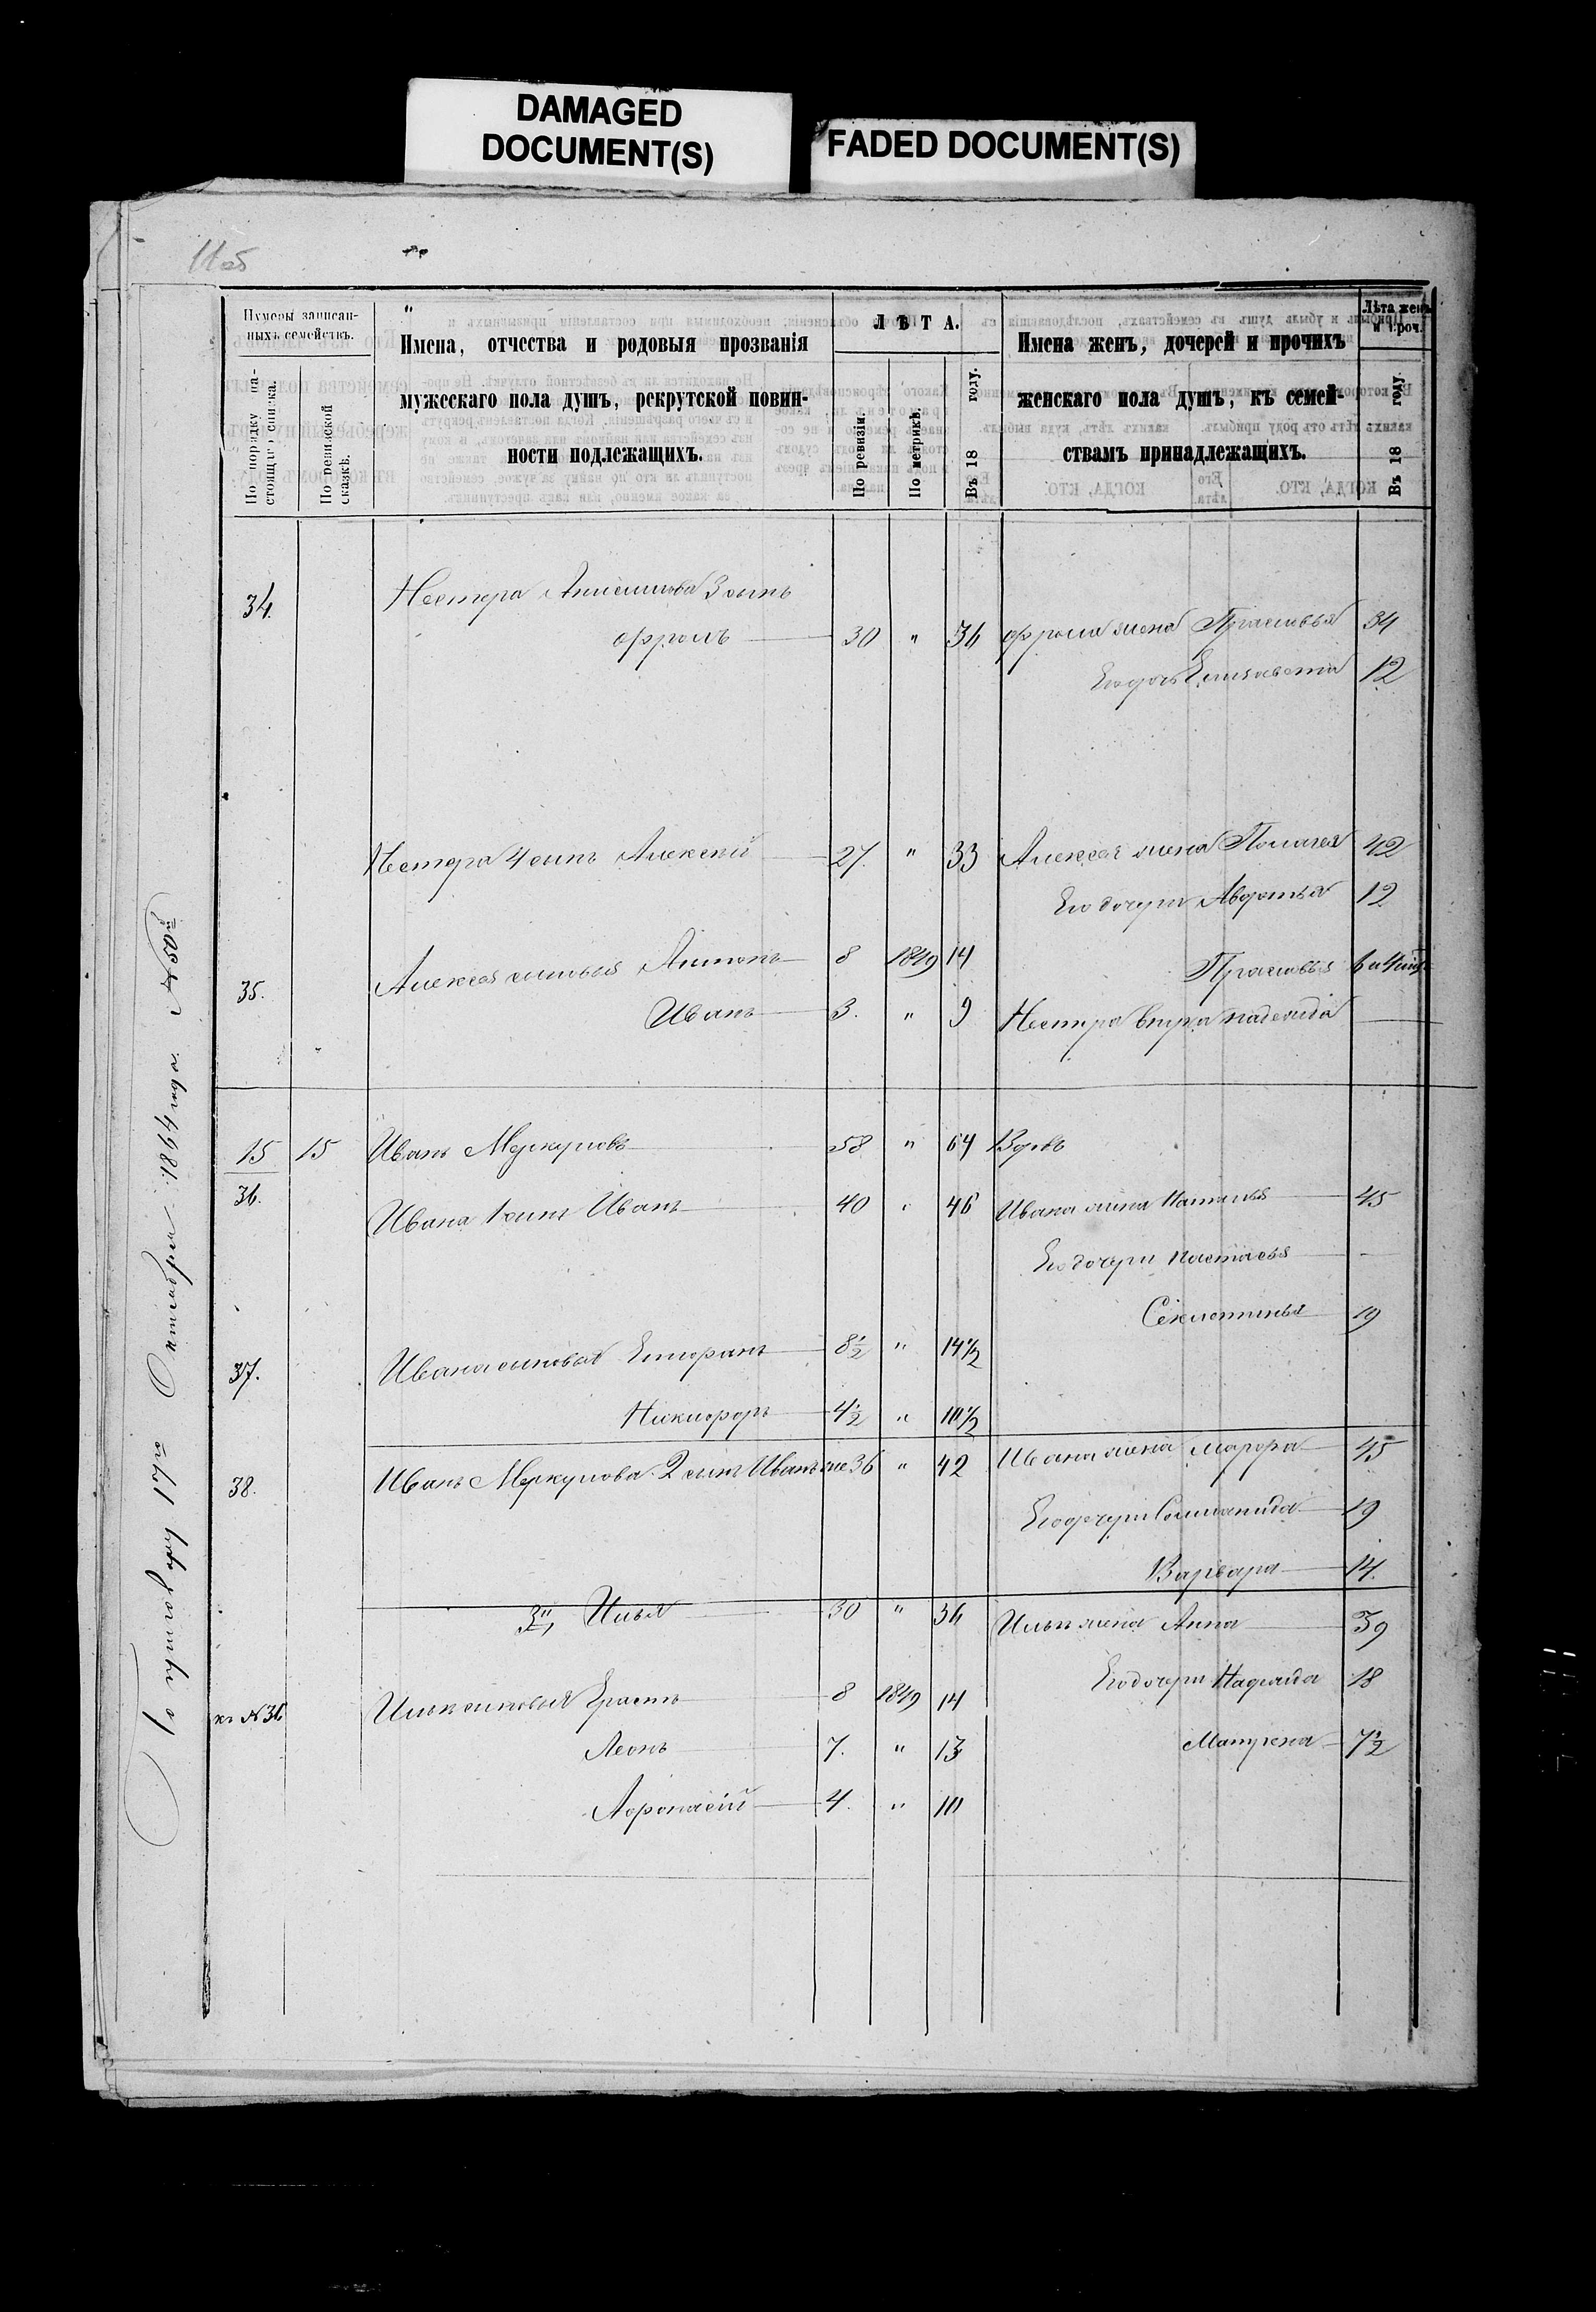 DAMAGED
DOCUMENT(S)
FADED DOCUMENT(S)
11 об
Нумеры записан-
ныхъ семействъ.
По порядку на-
стоящаго списка.
По ревизской
сказкѣ.
Имена, отчества и родовыя прозванія
мужескаго пола душъ, рекрутской повин-
ности подлежащихъ.
ЛѢТА.
По ревизіи.
По метрикѣ.
Въ 18 году.
Имена женъ, дочерей и прочихъ
женскаго пола душъ, къ семей-
ствамъ принадлежащихъ.
Лѣта женъ
и проч.
Въ 18 году.
34. Нестера Анисимова 3 сынъ
Фролъ 30 " 36 Фрола жена Прасковья 34
Его дочь Елизавета 12
Нестера 4 сынъ Алексей 27. " 33 Алексея жена Пелагея 42
Его дочери Авдотья 12
35. Алексея сыновья Антонъ 8 1849 14 Прасковья
Иванъ 3. " 9 Нестера внука надежда
15 15 Иванъ Меркуловъ 58 " 64 Вдовъ
36. Ивана 1 сынъ Иванъ 40 " 46 Ивана жена Наталья 45
Его дочери настасья
Секлетинья 19
37. Ивана сыновья Епифанъ 8½ " 14½
Никифоръ 4½ " 10½
38. Иванъ Меркулова 2 сынъ Иванъ же 36 " 42 Ивана жена марфа 45
Его дочери Соломанида 19
Варвара 14.
3й, Илья 30 " 36 Ильи жена Анна 39
Его дочери Надежда 18
къ №36 Ильи сыновья Ерастъ 8 1849 14
Леонъ 7. " 13 Матрена 7½
Афонасiй 4. " 10
Октября 1864 года. №50й